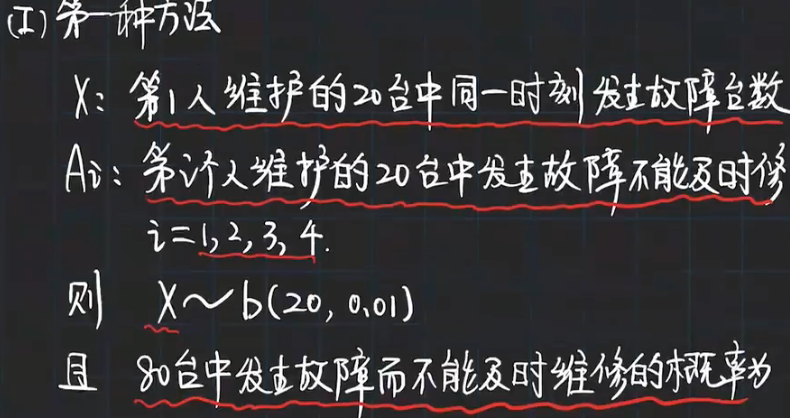 (I) 第一种方法
X: 第1人维护的20台中同一时刻发生故障台数
Ai: 第i个人维护的20台中发生故障不能及时修
i=1,2,3,4.
则 X~b(20, 0.01)
且 80台中发生故障而不能及时维修的概率为